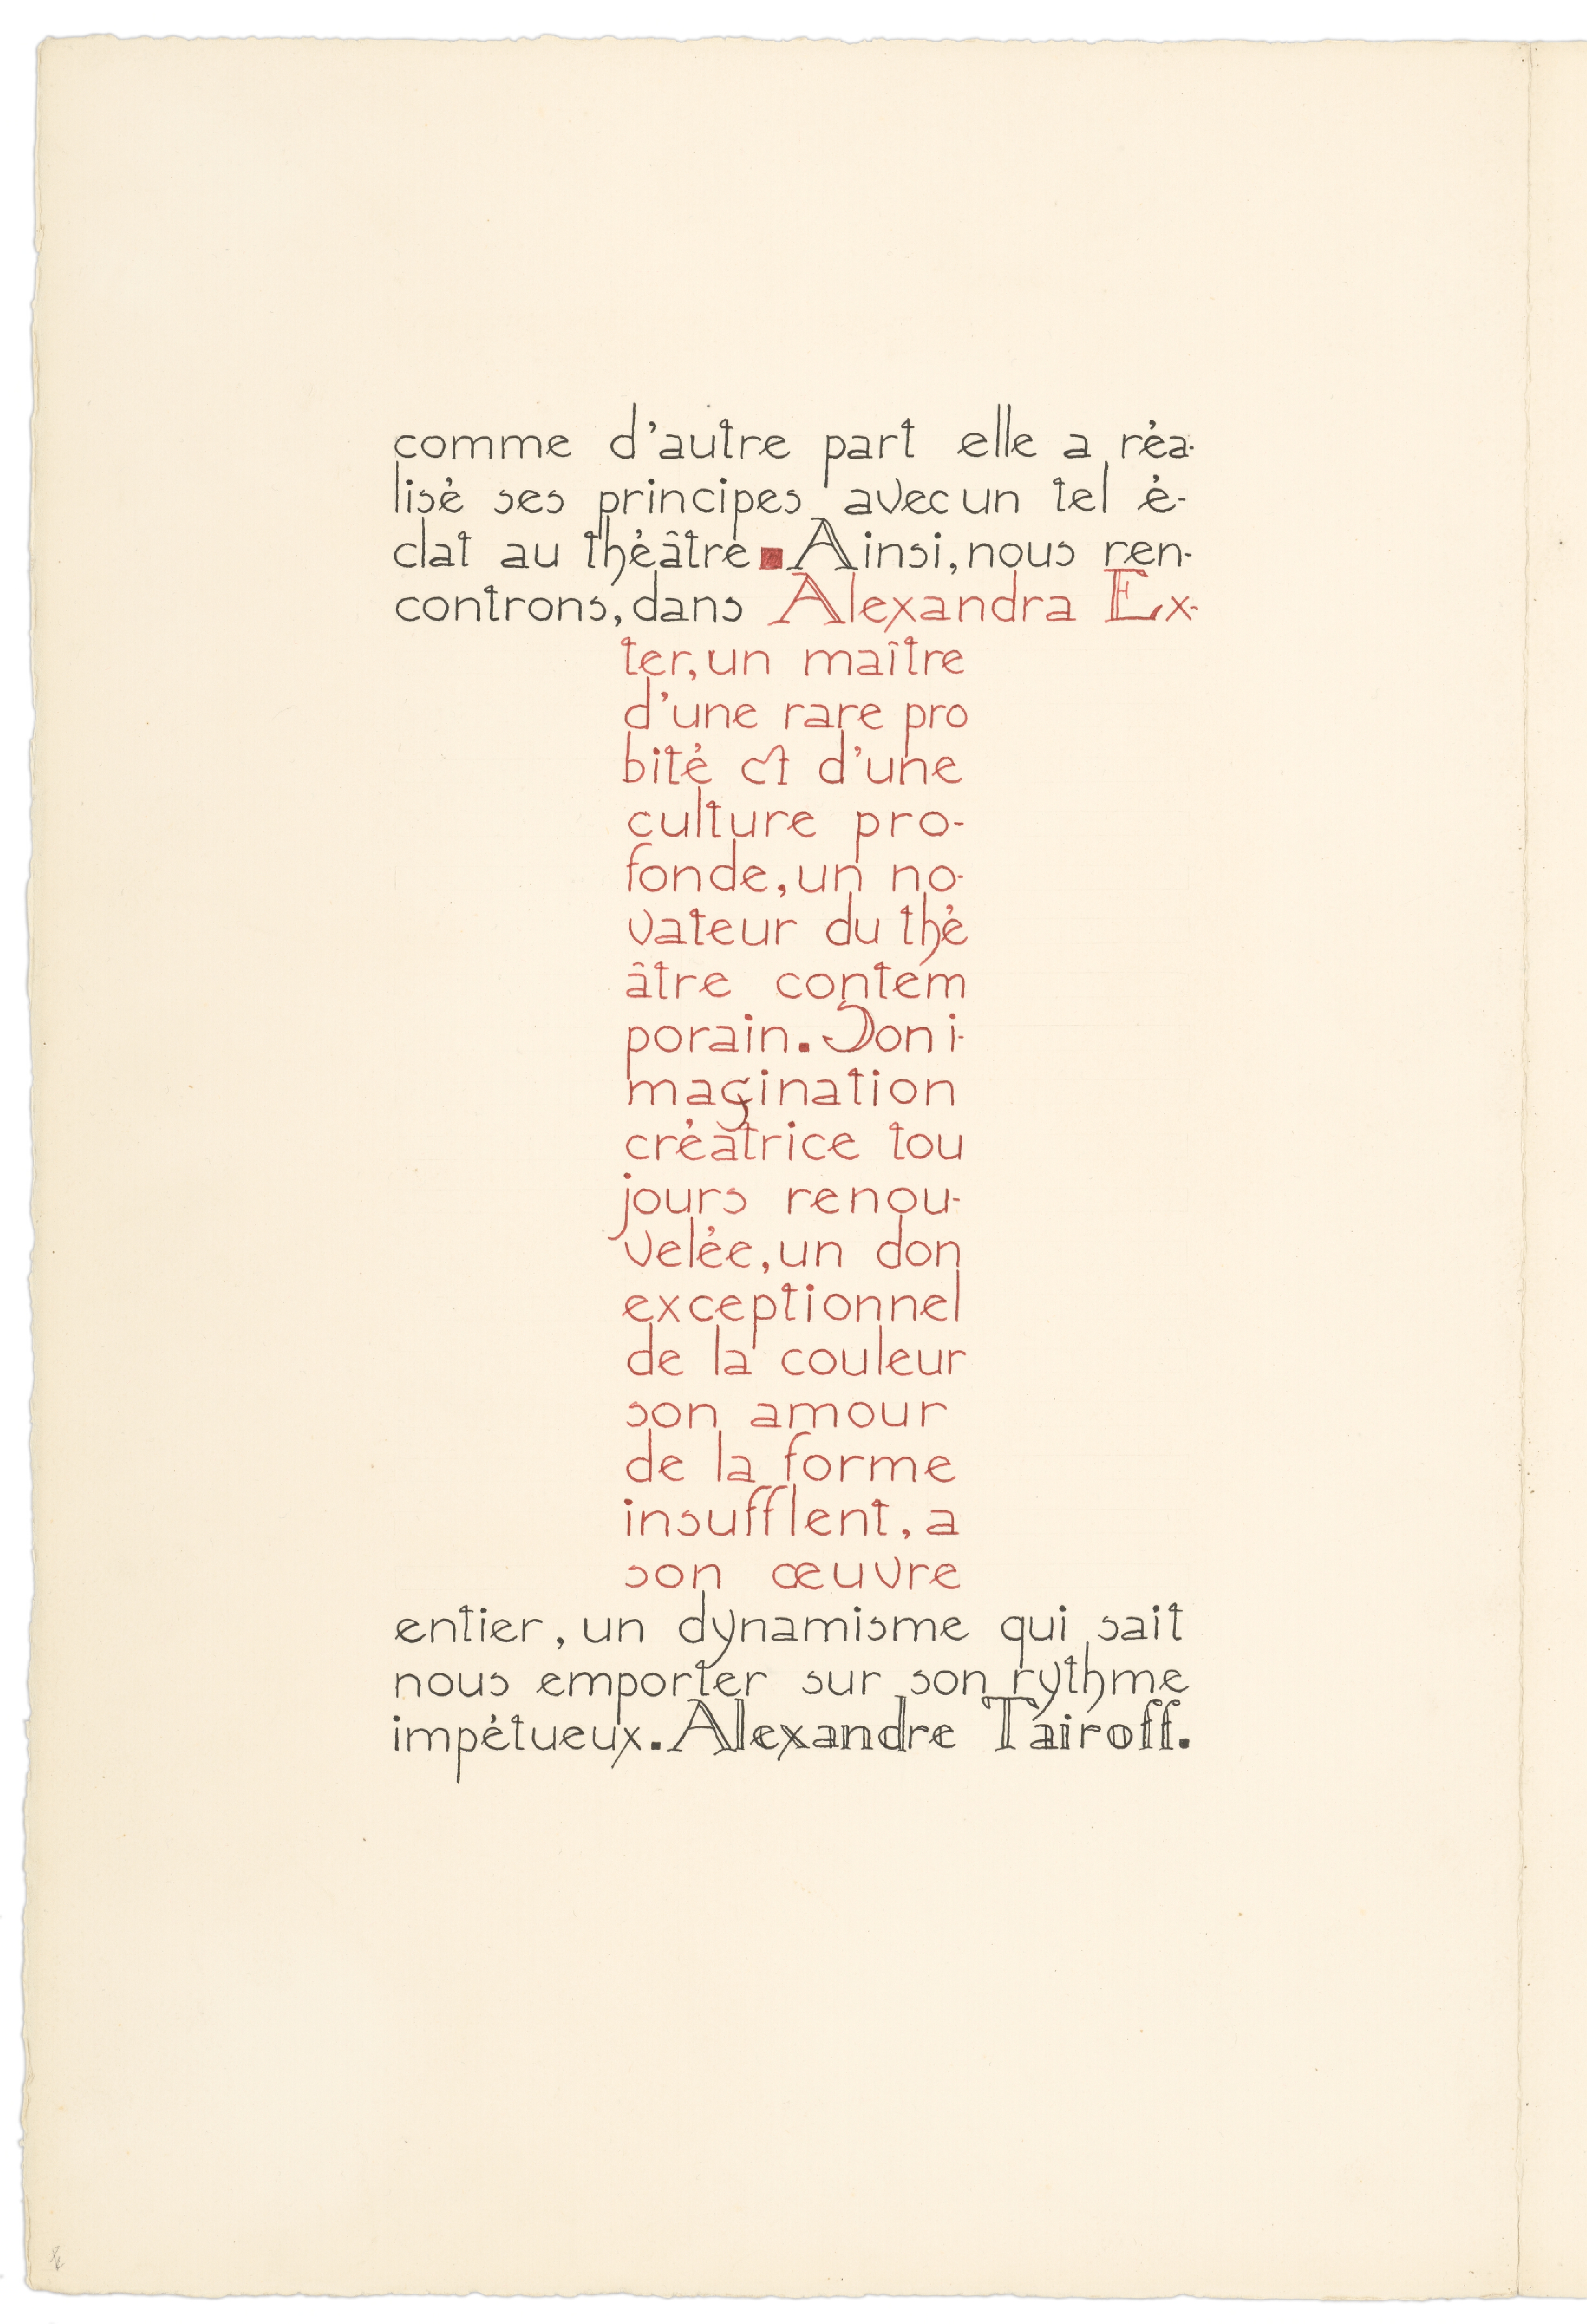 comme d'autre part elle a réa-
lisé ses principes avec un tel é-
clat au théâtre. Ainsi, nous ren-
controns, dans Alexandra Ex-
ter, un maître
d'une rare pro
bité et d'une
culture pro-
fonde, un no-
vateur du thé
âtre contem
porain. Son i-
magination
créatrice tou
jours renou-
velée, un don
exceptionnel
de la couleur
son amour
de la forme
insufflent, a
son œuvre
entier, un dynamisme qui sait
nous emporter sur son rythme
impétueux. Alexandre Taïroff.